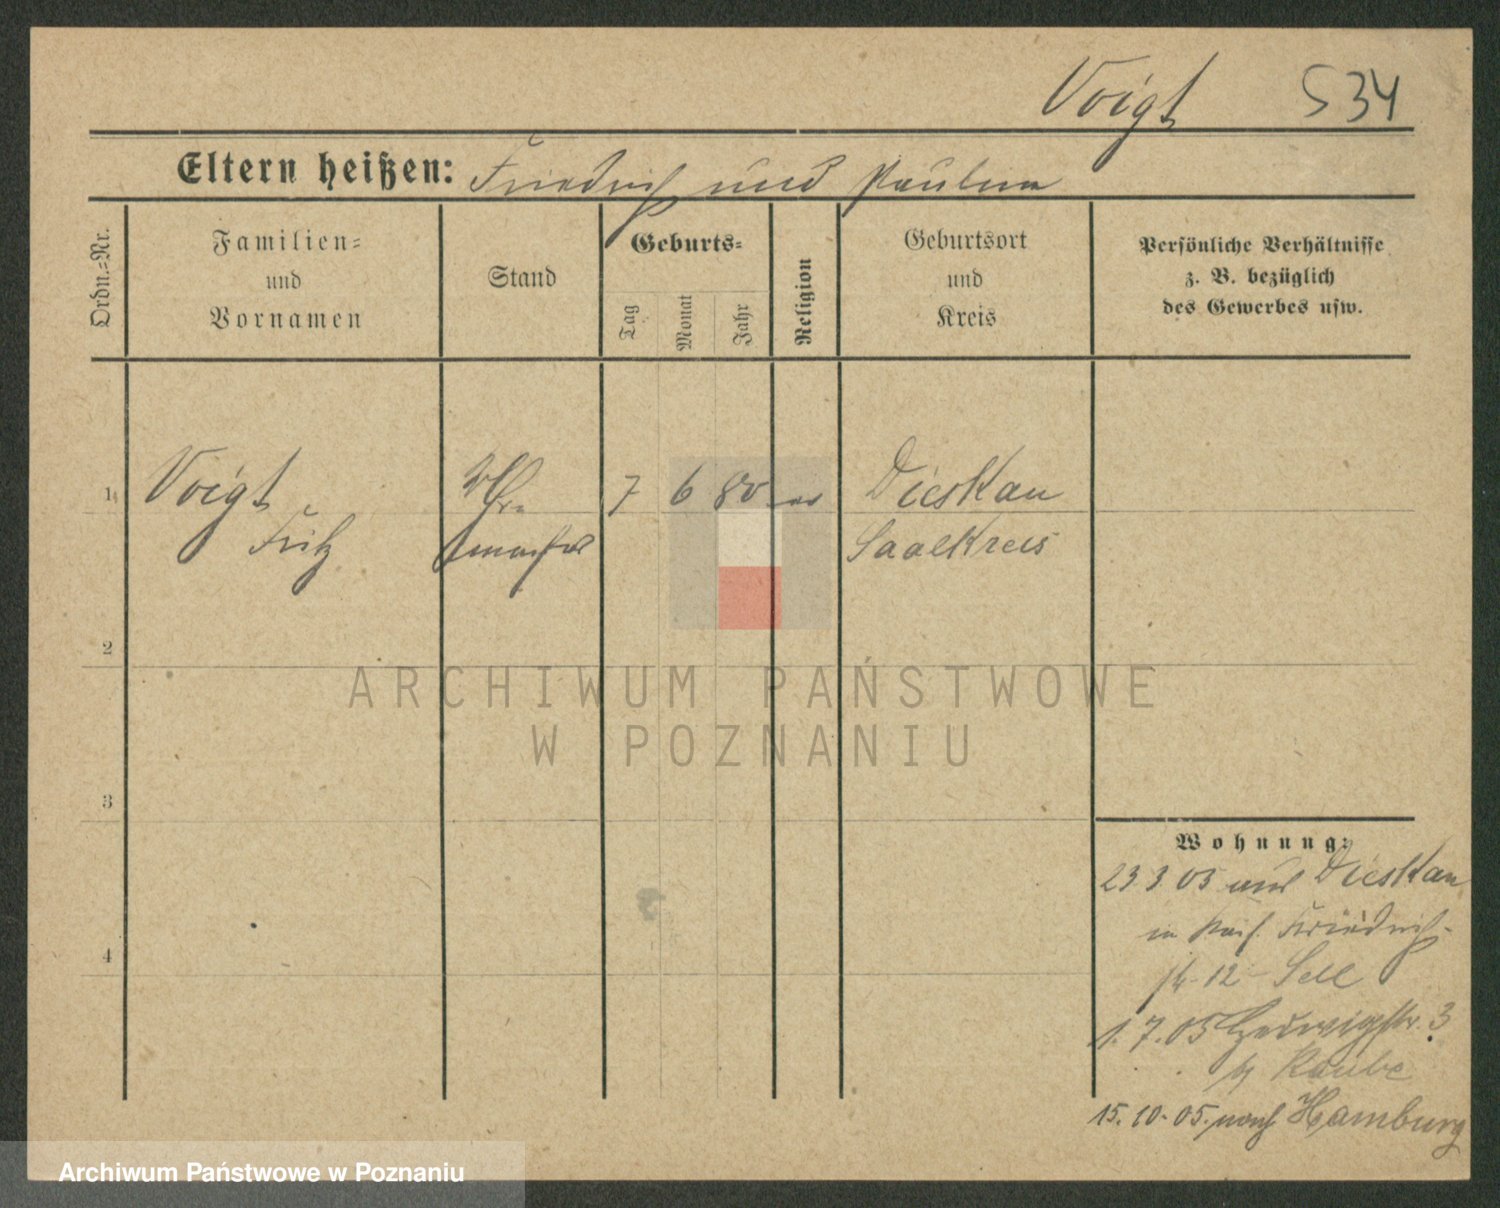 Voigt 534
Eltern heißen: Friedrich und Pauline
Ordn.-Nr.
Familien-
und
Vornamen
Stand
Geburts-
Tag
Monat
Jahr
Religion
Geburtsort
und
Kreis
Persönliche Verhältnisse
z. B. bezüglich
des Gewerbes usw.
1 Voigt 7 6 80 ev Dieskau
Fritz Saalkreis
2
ARCHIWUM PAŃSTWOWE
W POZNANIU
3
Wohnung:
23 3 05 aus Dieskau
in Kais. Friedrich-
str. 12 Sell
4
1. 7. 05 Hedwigstr. 3
b/ Raube
15. 10. 05. nach Hamburg
Archiwum Państwowe w Poznaniu